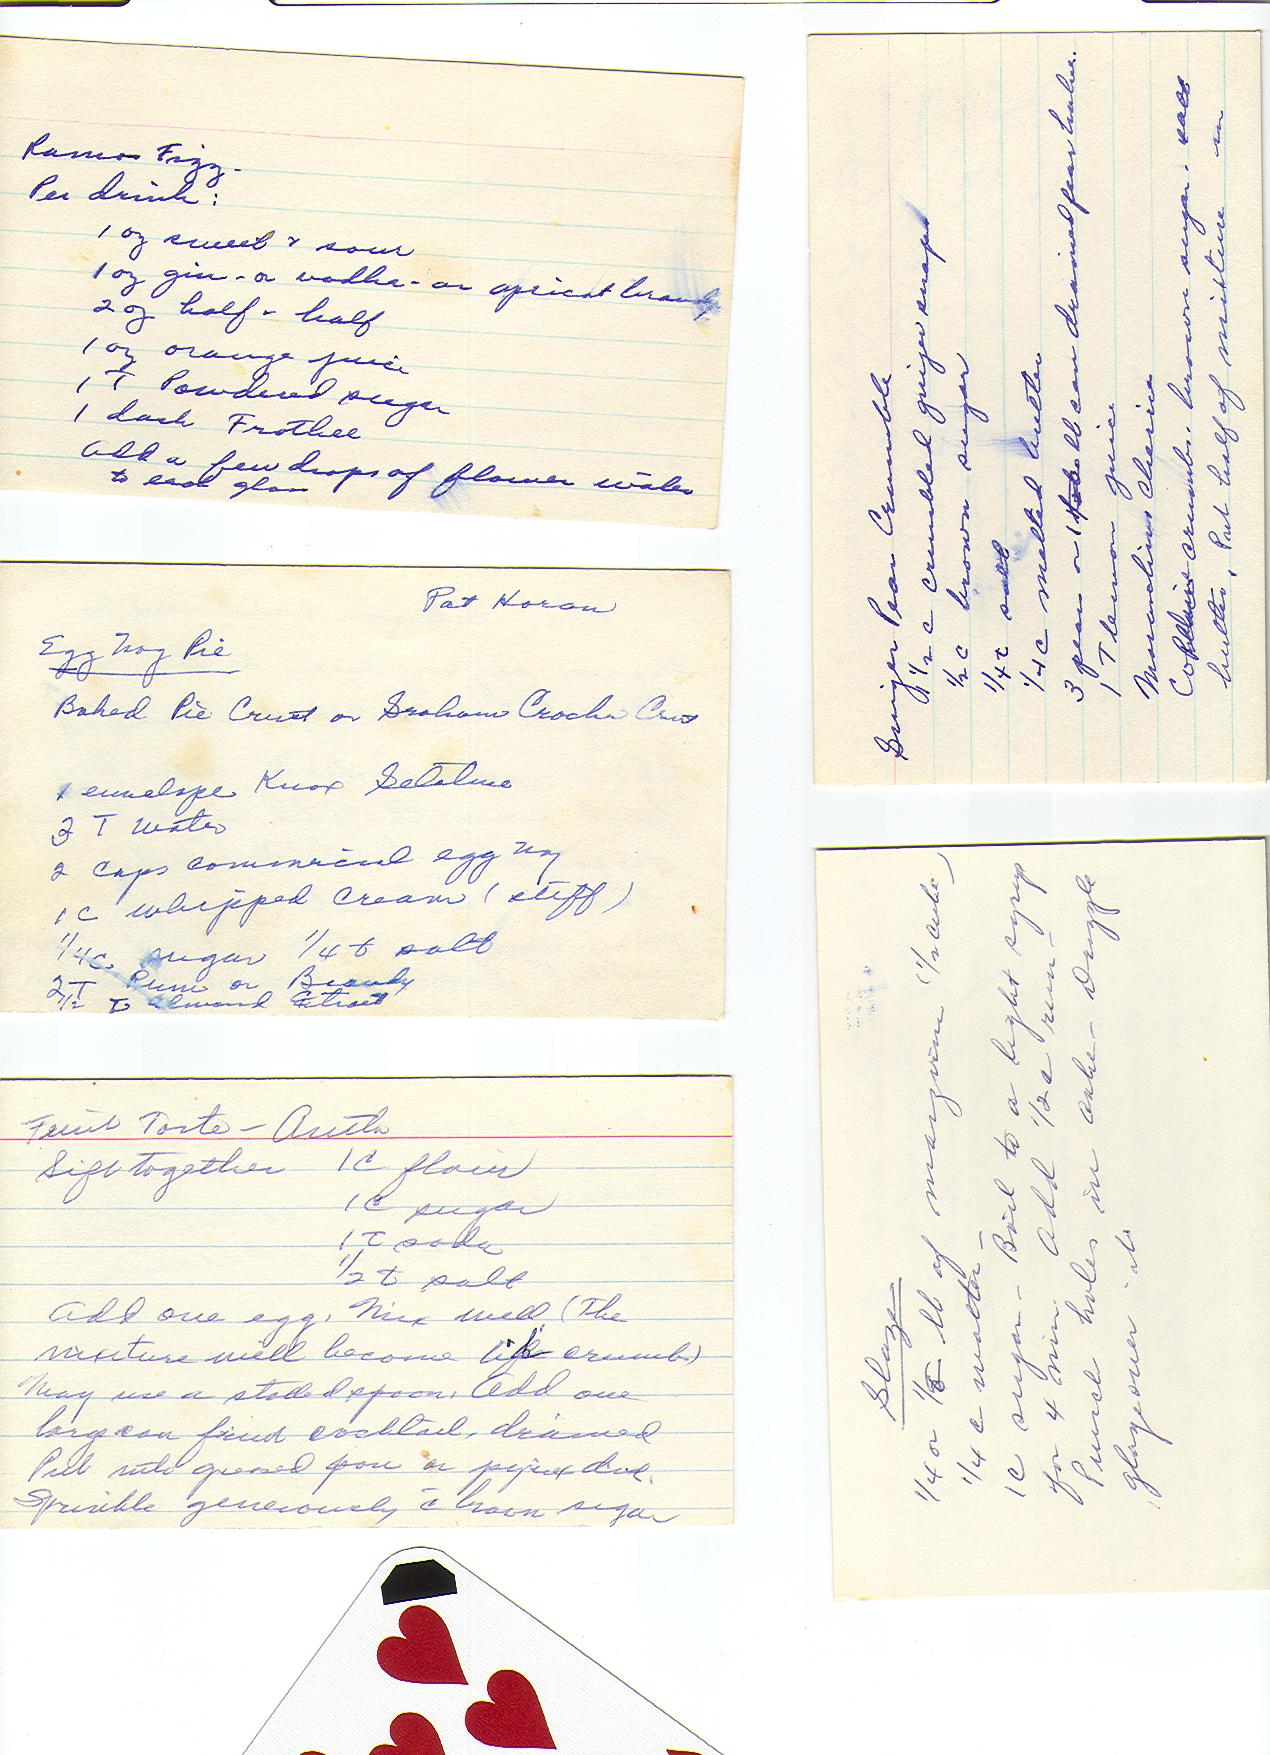 Ramos Fizz.
Per drink:
1 oz sweet & sour
1 oz gin - or vodka - or apricot brandy
2 oz half - half
1 oz orange juice
1 T Powdered sugar
1 dash Frothee
Add a few drops of flower water
to each glass
Pat Horan
Egg Nog Pie
Baked Pie Crust or Graham Cracker Crust
1 envelope Knox Gelatine
3 T Water
2 cups commercial egg nog
1 C whipped cream (stiff)
1/4 c sugar 1/4 t salt
2 T Rum or Brandy
1/2 t almond Extract
Fruit Torte -
Sift together 1 C flour
1 C sugar
1 t soda
1/2 t salt
Add one egg. Mix well (The
mixture will become like crumbs)
May use a slotted spoon. Add one
large can fruit cocktail, drained
Put into greased pan or pyrex dish.
Sprinkle generously c̄ brown sugar
Ginger Pear Crumble
1 1/2 c crumbled ginger snaps
1/2 c brown sugar
1/4 t salt
1/4 c melted butter
3 pears or 1 lb can drained pear halves.
1 T lemon juice
Maraschino Cherries
Combine crumbs, brown sugar, salt
butter, Put half of mixture in
Glaze
1/4 or 1/8 lb of margarine (1/2 cube)
1/4 c water -
1 c sugar - Boil to a light syrup
for 4 min. Add 1/2 c rum -
Punch holes in cake - Drizzle
glaze over it.